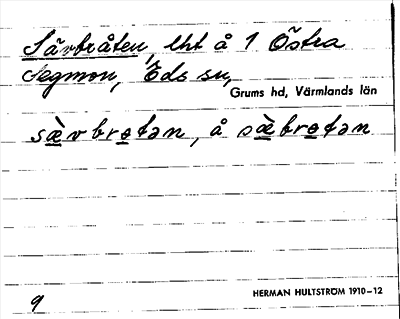 Sävbråten, lht å 1 Östra
Segmon, Eds sn,
Grums hd, Värmlands län
sæ̀vbro̲tən, å sæ̀bro̲tən
HERMAN HULTSTRÖM 1910–12
9